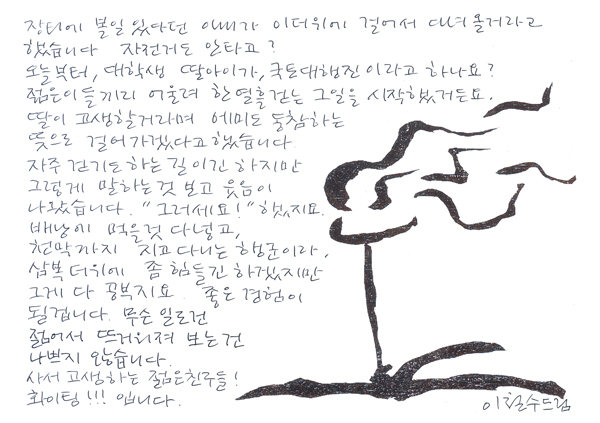 장터에 볼일 있다던 아빠가 이더위에 걸어서 다녀올거라고
했습니다 자전거도 안타고?
오늘부터, 대학생 딸아이가, 국토대행진이라고 하나요?
젊은이들끼리 어울려 한열흘걷는 그일을 시작했거든요.
딸이 고생할거라며 에미도 동참하는
뜻으로 걸어가겠다고했습니다
자주 걷기도하는 길이긴 하지만
그렇게 말하는것 보고 웃음이
나왔습니다. "그러세요!" 했지요.
배낭에 먹을것 다넣고,
천막까지 지고 다니는 행군이라,
삼복더위에 좀 힘들긴 하겠지만
그게 다 공부지요 좋은 경험이
될겁니다. 무슨 일로건
젊어서 뜨거워져 보는건
나쁘지 않습니다.
사서 고생하는 젊은친구들!
화이팅!!! 입니다.
이철수드림